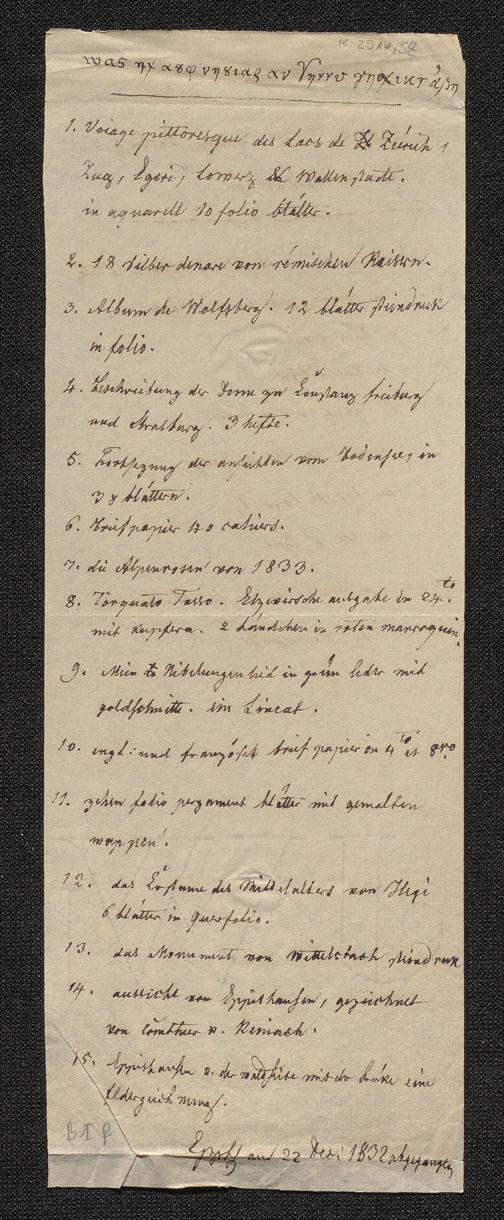 K 2914, 52
was ηχ αυφ νηυιας αν Υηννυ γηχικτ
1. Voiage pittoresque des Lacs de Zürich,
Zug, Egeri, Lowerz & Wallenstadt.
in aquarell 10 folio blätter.
2. 18 silber denare von römischen Kaisern.
3. Album de Wolfsberg. 12 blätter steindruck
in folio.
4. Beschreibung der Dome zu Constanz freiburg
und Strasburg. 3 hefte.
5. Fortsezung der ansichten vom Bodensee, in
3 blättern.
6. Briefpapier 10 cahiers.
7. die Alpenrosen von 1833.
8. Torquato Tasso. Elzevirsche ausgabe in 24to.
mit kupfern. 2 bändchen in roten marroquin.
9. Mein Nibelungenlied in grün leder mit
goldschnitt. ein Lineal.
10. engl: und französisch brief papier in 4to et 8vo
11. zehen folio pergament blätter mit gemalten
wappen.
12. das Costume des Mittelalters von Hegi
6 blätter in Querfolio.
13. das Monument von Wittelsbach steindruck
14. aussicht von Eppishausen, gezeichnet
von comthur v. Reinach.
15. Eppishausen v. der waldseite mit der brücke eine
federzeichnung.
Eppsh an 22 Dez. 1832 abgegangen